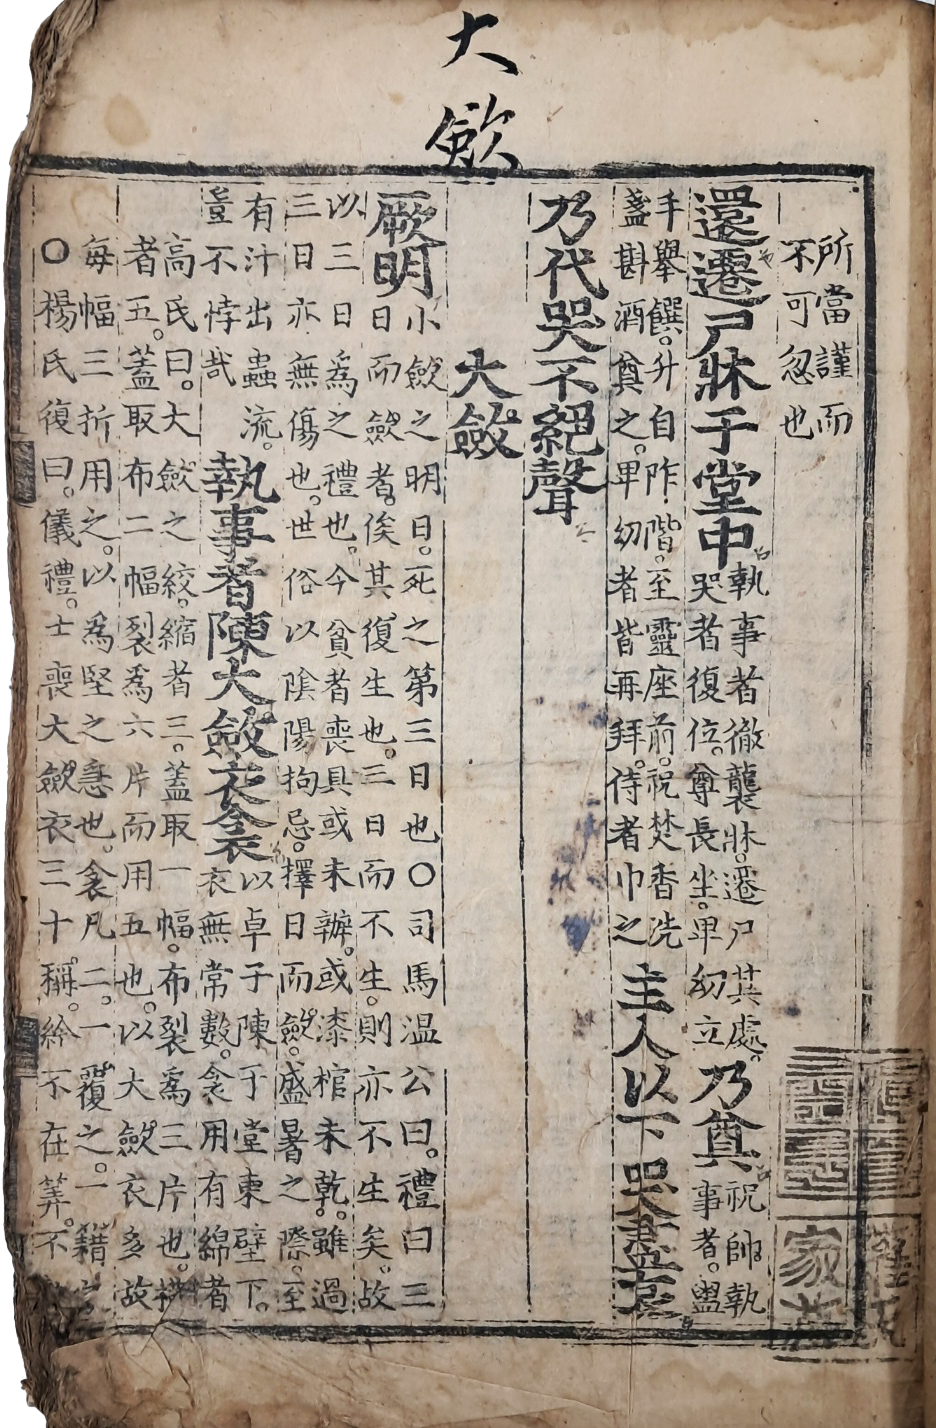 大斂
所當謹而
不可忽也
還遷尸牀于堂中
執事者徹襲牀。遷尸其處。
哭者復位。尊長坐。卑幼立
乃奠
祝帥執
事者。盥
手舉饌。升自阼階。至靈座前。祝焚香洗
盞斟酒奠之。卑幼者皆再拜。侍者巾之
主人以下哭盡哀
乃代哭不絕聲
大斂
厥明
小斂之明日。死之第三日也〇司馬溫公曰。禮曰三
日而斂者。俟其復生也。三日而不生。則亦不生矣。故
以三日爲之禮也。今貧者喪具或未辦。或漆棺未乾。雖過
三日亦無傷也。世俗以陰陽拘忌。擇日而斂。盛暑之際。至
有汁出蟲流。
豈不悖哉
執事者陳大斂衣衾
以卓子陳于堂東壁下。
衣無常數。衾用有綿者
高氏曰。大斂之絞。縮者三。蓋取一幅。布裂爲三片也。橫
者五。蓋取布二幅裂爲六片而用五也。以大斂衣多故
每幅三折用之。以爲堅之急也。衾凡二。一覆之。一藉
〇楊氏復曰。儀禮。士喪大斂衣三十稱。紟不在筭。不
家藏